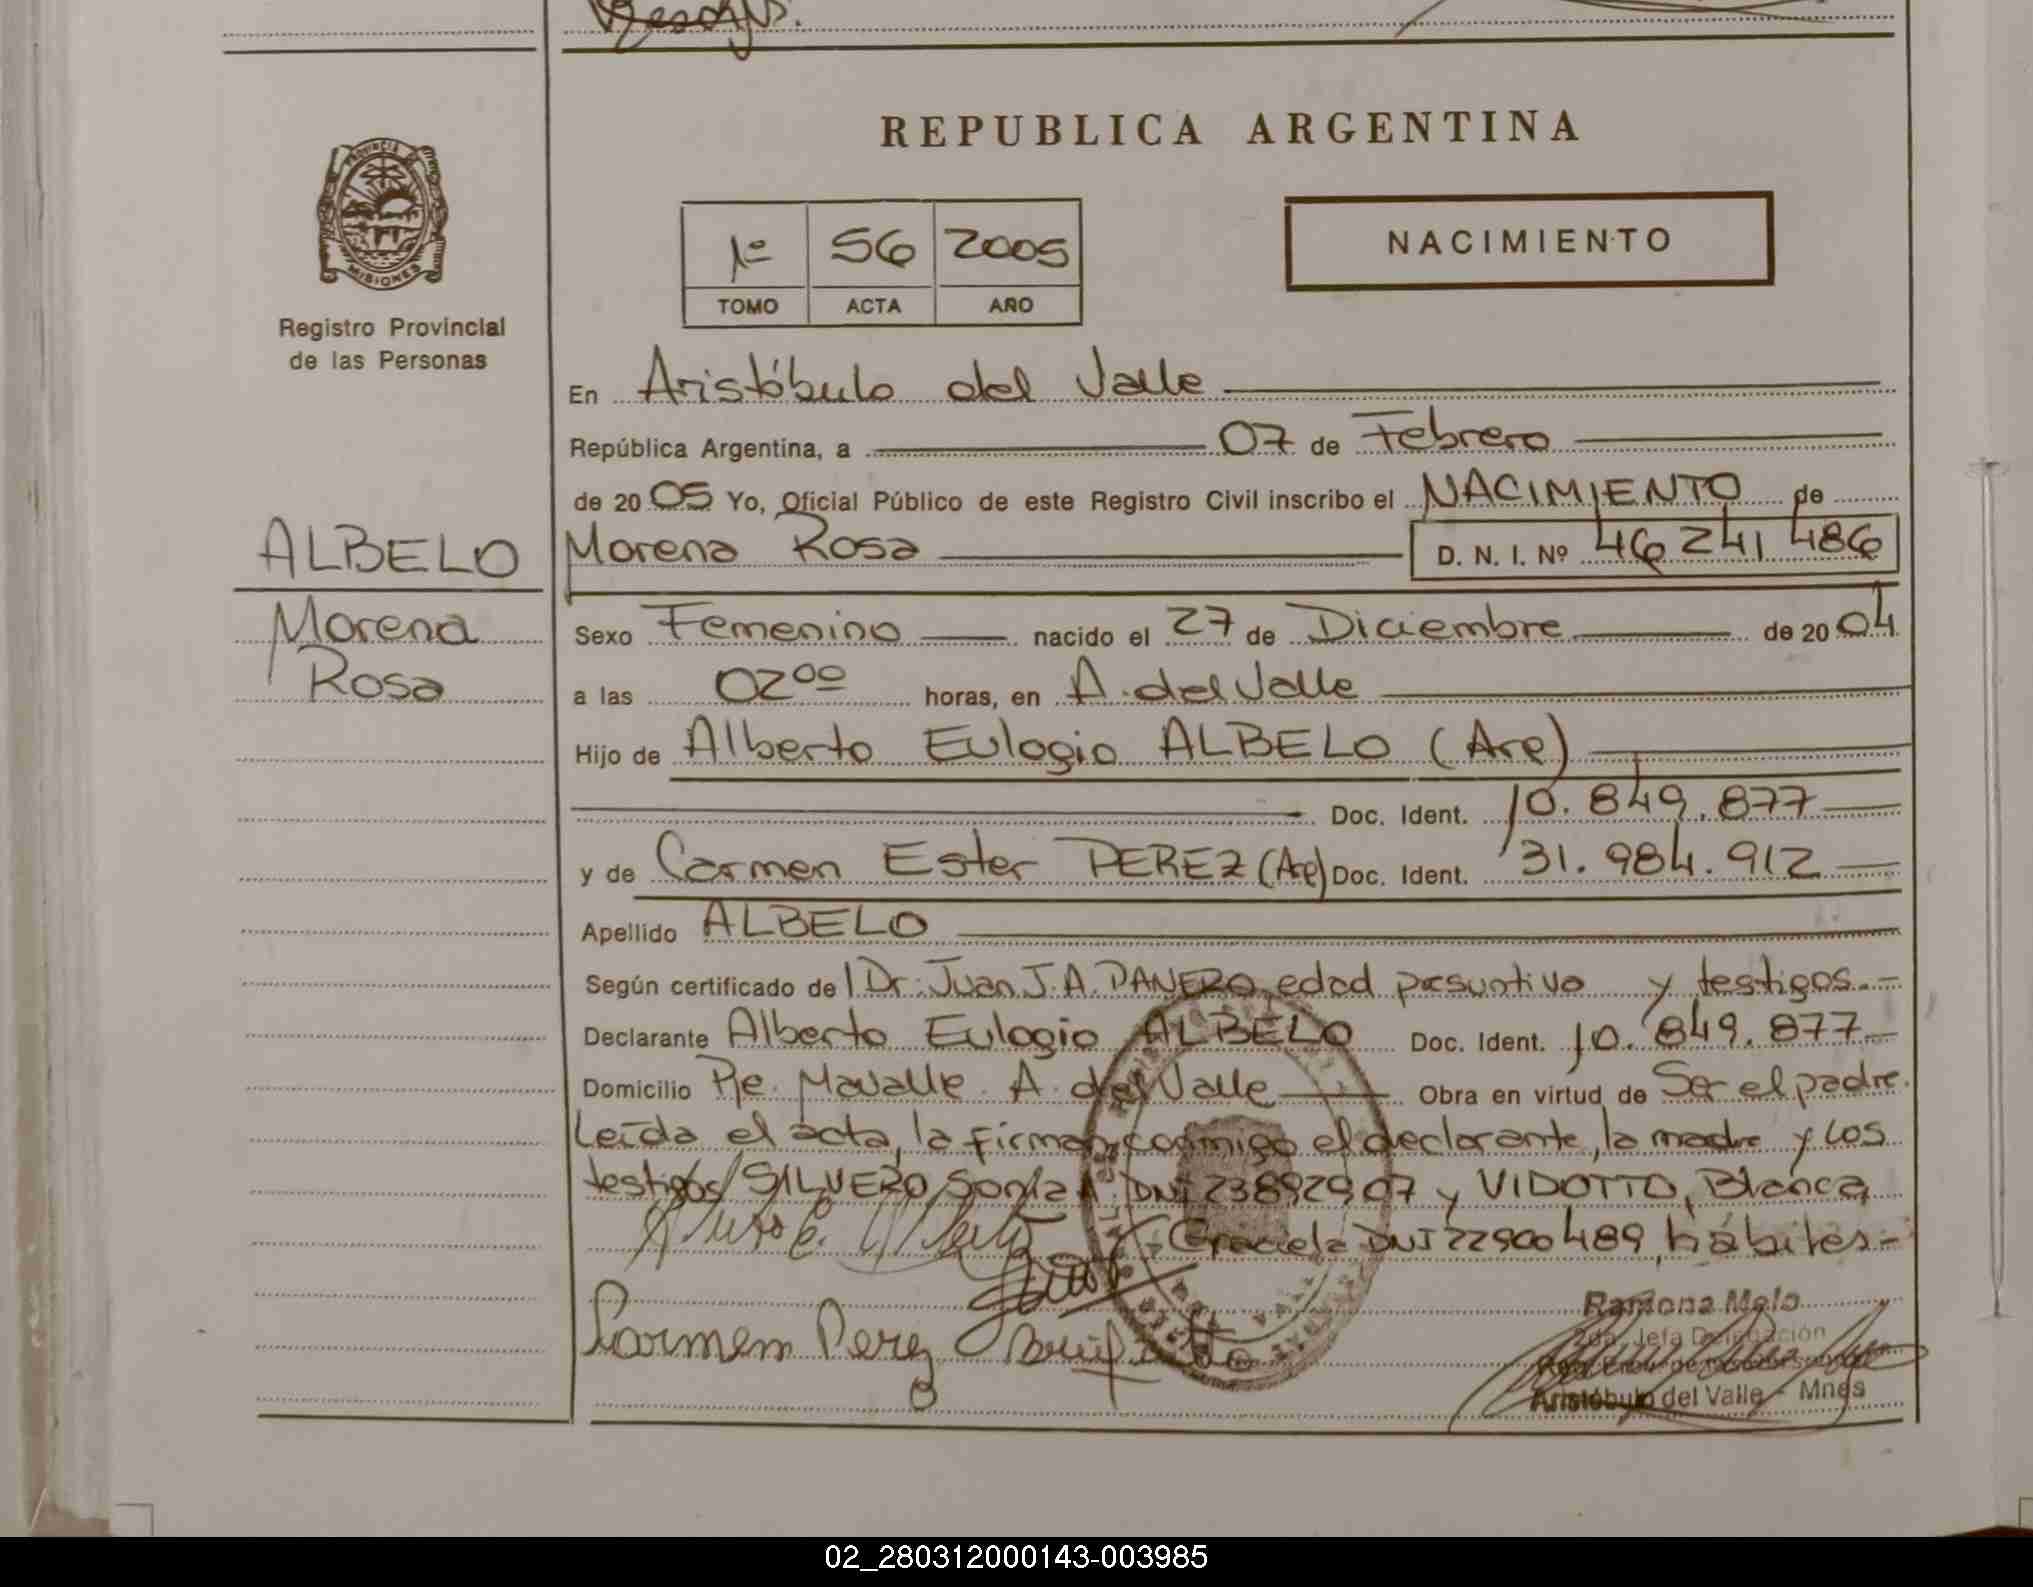 REPUBLICA ARGENTINA
PROVINCIA DE
MISIONES
Registro Provincial
de las Personas
1º 56 2005
TOMO ACTA AÑO
NACIMIENTO
En Aristóbulo del Valle
República Argentina, a 07 de Febrero
de 2005 Yo, Oficial Público de este Registro Civil inscribo el NACIMIENTO de
ALBELO
Morena Rosa D. N. I. Nº 46 241 486
Morena
Rosa
Sexo Femenino nacido el 27 de Diciembre de 2004
a las 02 00 horas, en A. del Valle
Hijo de Alberto Eulogio ALBELO (Are)
Doc. Ident. 10.849.877
y de Carmen Ester PEREZ (Are) Doc. Ident. 31.984.912
Apellido ALBELO
Según certificado de Dr. Juan J. A. PANERO, edad presuntiva y testigos.-
Declarante Alberto Eulogio ALBELO Doc. Ident. 10.849.877-
Domicilio Pje. Mavalle. A. del Valle Obra en virtud de Ser el padre.
Leída el acta, la firman conmigo el declarante, la madre y los
testigos SILVERO, Sonia A. DNI 23892907 y VIDOTTO, Blanca
Graciela DNI 22900489, hábiles.-
Carmem Perez
Ramona Melo
2da. Jefa Delegación
Aristóbulo del Valle - Mnes
02_280312000143-003985